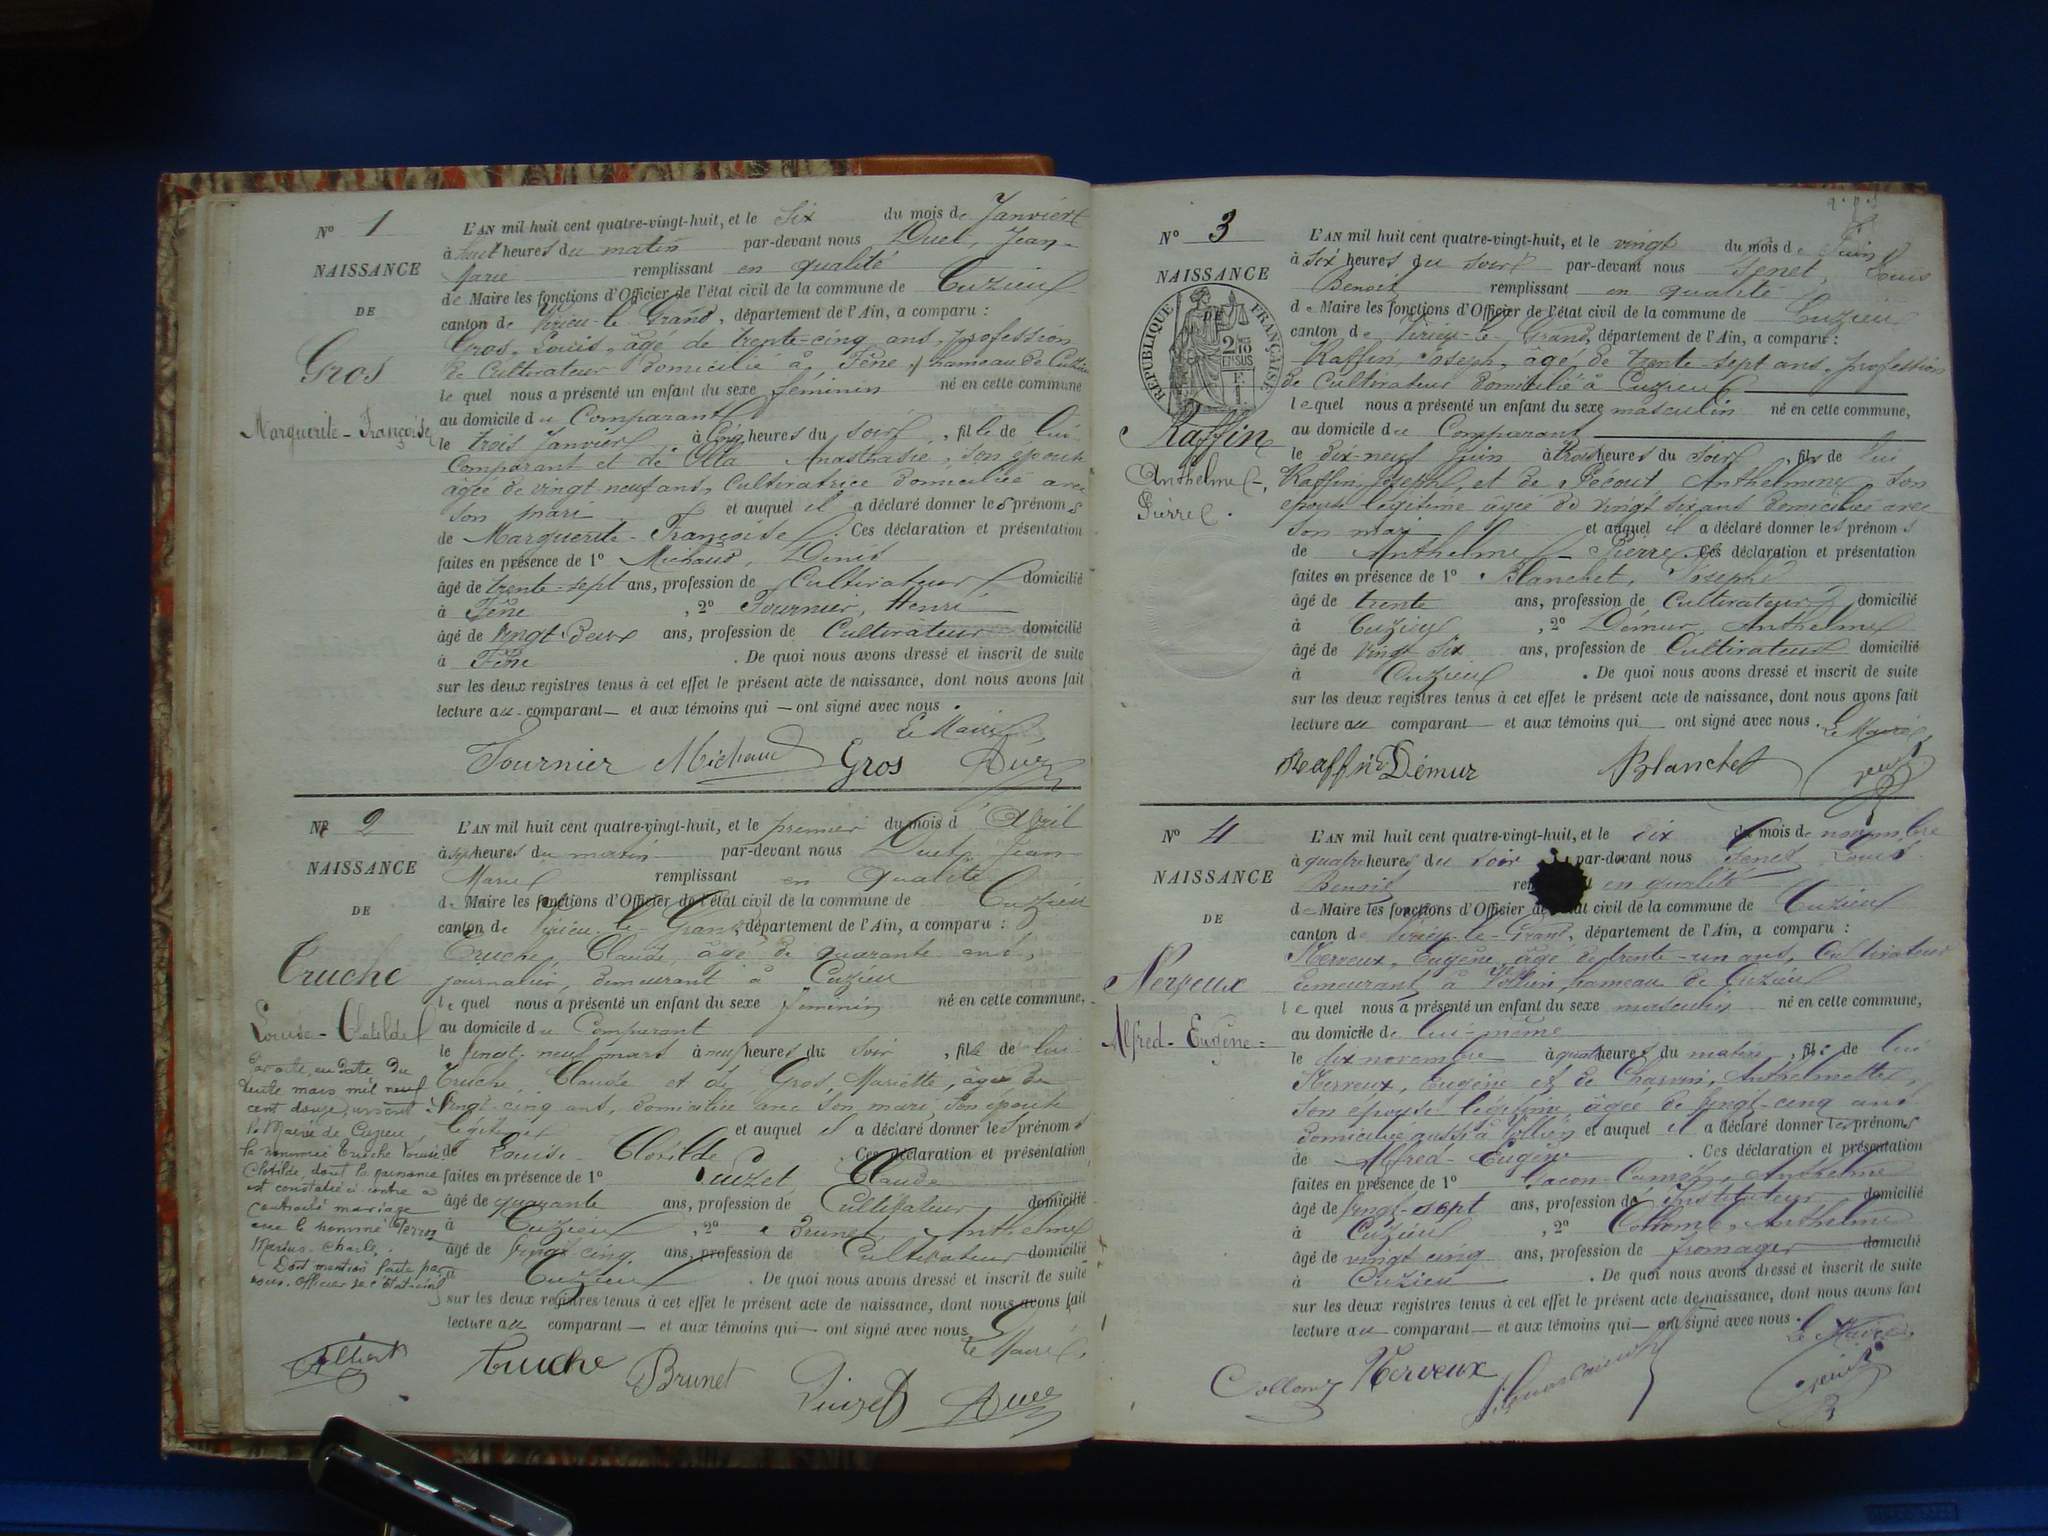 N° 1
NAISSANCE
DE
Gros
Marguerite-Françoise
L'AN mil huit cent quatre-vingt-huit, et le six du mois de Janvier
à huit heures du matin par-devant nous Duet, Jean-
Marie remplissant en qualité
de Maire les fonctions d'Officier de l'état civil de la commune de Cuzieu
canton de Virieu-le-Grand, département de l'Ain, a comparu :
Gros, Louis, âgé de trente-cinq ans, profession
de Cultivateur domicilié à Fène, hameau de Cuzieu
lequel nous a présenté un enfant du sexe féminin né en cette commune
au domicile du Comparant
le trois Janvier à cinq heures du soir, fille de lui
Comparant et de Anasthasie, son épouse
âgée de vingt-neuf ans, Cultivatrice domiciliée avec
son mari et auquel il a déclaré donner les prénoms
de Marguerite-Françoise. Ces déclaration et présentation
faites en présence de 1° Michaud, Denis
âgé de trente-sept ans, profession de Cultivateur domicilié
à Fène, 2° Fournier, Henri
âgé de vingt-deux ans, profession de Cultivateur domicilié
à Fène. De quoi nous avons dressé et inscrit de suite
sur les deux registres tenus à cet effet le présent acte de naissance, dont nous avons fait
lecture au comparant et aux témoins qui ont signé avec nous.
Le Maire,
Fournier Michaud Gros Duet
N° 2
NAISSANCE
DE
Truche
Louise-Clotilde
L'AN mil huit cent quatre-vingt-huit, et le premier du mois d'Avril
à sept heures du matin par-devant nous Duet, Jean
Marie remplissant en qualité
de Maire les fonctions d'Officier de l'état civil de la commune de Cuzieu
canton de Virieu-le-Grand, département de l'Ain, a comparu :
Truche, Claude, âgé de quarante ans,
journalier, demeurant à Cuzieu
lequel nous a présenté un enfant du sexe féminin né en cette commune,
au domicile du Comparant
le vingt-neuf mars à neuf heures du soir, fille de lui
Truche, Claude et de Gros, Mariette, âgée de
vingt-cinq ans, domiciliée avec son mari, son épouse
légitime et auquel il a déclaré donner les prénoms
de Louise-Clotilde. Ces déclaration et présentation
faites en présence de 1° Luizet, Claude
âgé de quarante ans, profession de Cultivateur domicilié
à Cuzieu, 2° Brunet, Anthelme
âgé de vingt cinq ans, profession de Cultivateur domicilié
à Cuzieu. De quoi nous avons dressé et inscrit de suite
sur les deux registres tenus à cet effet le présent acte de naissance, dont nous avons fait
lecture au comparant et aux témoins qui ont signé avec nous
Le Maire,
Truche Brunet Luizet Duet
Par acte, en date du
trente mars mil neuf
cent douze, inscrit
à la Mairie de Cuzieu,
la nommée Truche Louise
Clotilde, dont la naissance
est constatée ci contre a
contracté mariage
avec le nommé
Marius Charles.
Dont mention faite par
nous, Officier de l'état civil
N° 3
NAISSANCE
DE
RÉPUBLIQUE FRANÇAISE
2/10 EN SUS
Raffin
Anthelme-
Pierre.
L'AN mil huit cent quatre-vingt-huit, et le vingt du mois de Juin
à six heures du soir par-devant nous Genet, Louis
Benoit remplissant en qualité
de Maire les fonctions d'Officier de l'état civil de la commune de Cuzieu
canton de Virieu-le-Grand, département de l'Ain, a comparu :
Raffin, Joseph, âgé de trente-sept ans, profession
de Cultivateur domicilié à Cuzieu
lequel nous a présenté un enfant du sexe masculin né en cette commune,
au domicile du Comparant
le dix-neuf Juin à trois heures du soir, fils de lui
Raffin, Joseph, et de Pécout Anthelmine son
épouse légitime âgée de vingt six ans domiciliée avec
son mari et auquel il a déclaré donner les prénoms
de Anthelme-Pierre. Ces déclaration et présentation
faites en présence de 1° Blanchet, Joseph
âgé de trente ans, profession de Cultivateur domicilié
à Cuzieu, 2° Démur, Anthelme
âgé de vingt six ans, profession de Cultivateur domicilié
à Cuzieu. De quoi nous avons dressé et inscrit de suite
sur les deux registres tenus à cet effet le présent acte de naissance, dont nous avons fait
lecture au comparant et aux témoins qui ont signé avec nous.
Le Maire,
Raffin Démur Blanchet Genet
N° 4
NAISSANCE
DE
Nerveux
Alfred-Eugène
L'AN mil huit cent quatre-vingt-huit, et le six du mois de novembre
à quatre heures du soir par-devant nous Genet, Louis
Benoit en qualité
de Maire les fonctions d'Officier de l'état civil de la commune de Cuzieu
canton de Virieu-le-Grand, département de l'Ain, a comparu :
Nerveux, Eugène, âgé de trente-un ans, Cultivateur
demeurant à Vollien, hameau de Cuzieu
lequel nous a présenté un enfant du sexe masculin né en cette commune,
au domicile de lui-même
le six novembre à quatre heures du matin, fils de lui
Nerveux, Eugène et de Charvin, Anthelmette,
son épouse légitime, âgée de vingt-cinq ans
domiciliée aussi à Vollien et auquel il a déclaré donner les prénoms
de Alfred-Eugène. Ces déclaration et présentation
faites en présence de 1° Anthelme
âgé de vingt-sept ans, profession de Instituteur domicilié
à Cuzieu, 2° Collomb, Anthelme
âgé de vingt cinq ans, profession de fromager domicilié
à Cuzieu. De quoi nous avons dressé et inscrit de suite
sur les deux registres tenus à cet effet le présent acte de naissance, dont nous avons fait
lecture au comparant et aux témoins qui ont signé avec nous.
Le Maire,
Collomb Nerveux Genet